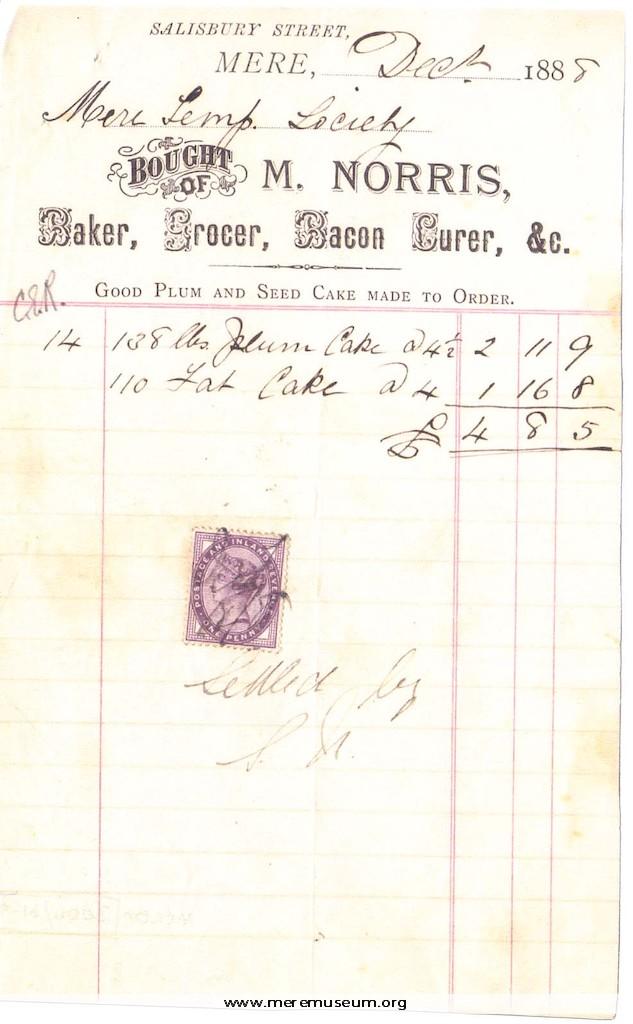 SALISBURY STREET,
MERE, Dec 1888
Mere Temp. Society
BOUGHT OF M. NORRIS,
Baker, Grocer, Bacon Curer, &c.
GOOD PLUM AND SEED CAKE MADE TO ORDER.
14 138 lbs Plum Cake @ 4½ 2 11 9
110 Fat Cake @ 4 1 16 8
£ 4 8 5
POSTAGE AND INLAND REVENUE
ONE PENNY
Settled by
www.meremuseum.org